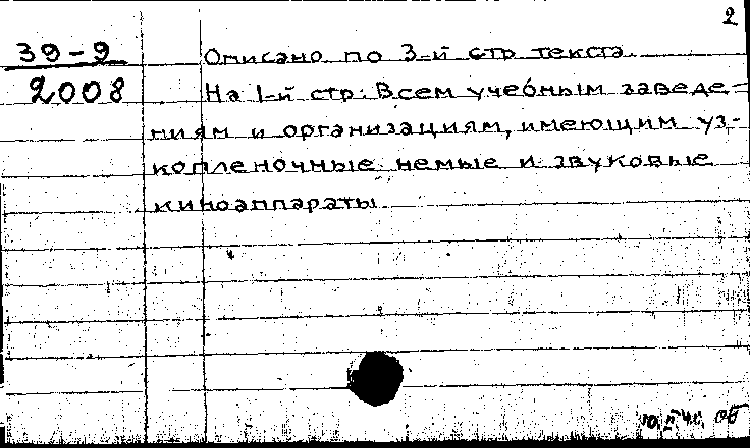 2
39-9
2008
Описано по 3-й стр текста.
На 1-й стр: Всем учебным заведе-
ниям и организациям, имеющим уз-
копленочные немые и звуковые
киноаппараты.